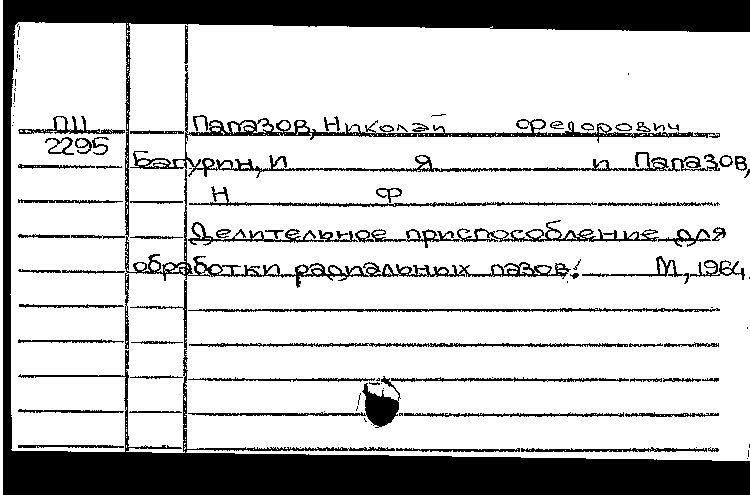 П11 Папазов, Николай Федорович
2295
Батурин, И Я и Папазов,
Н Ф
Делительное приспособление для
обработки радиальных пазов. М, 1964.